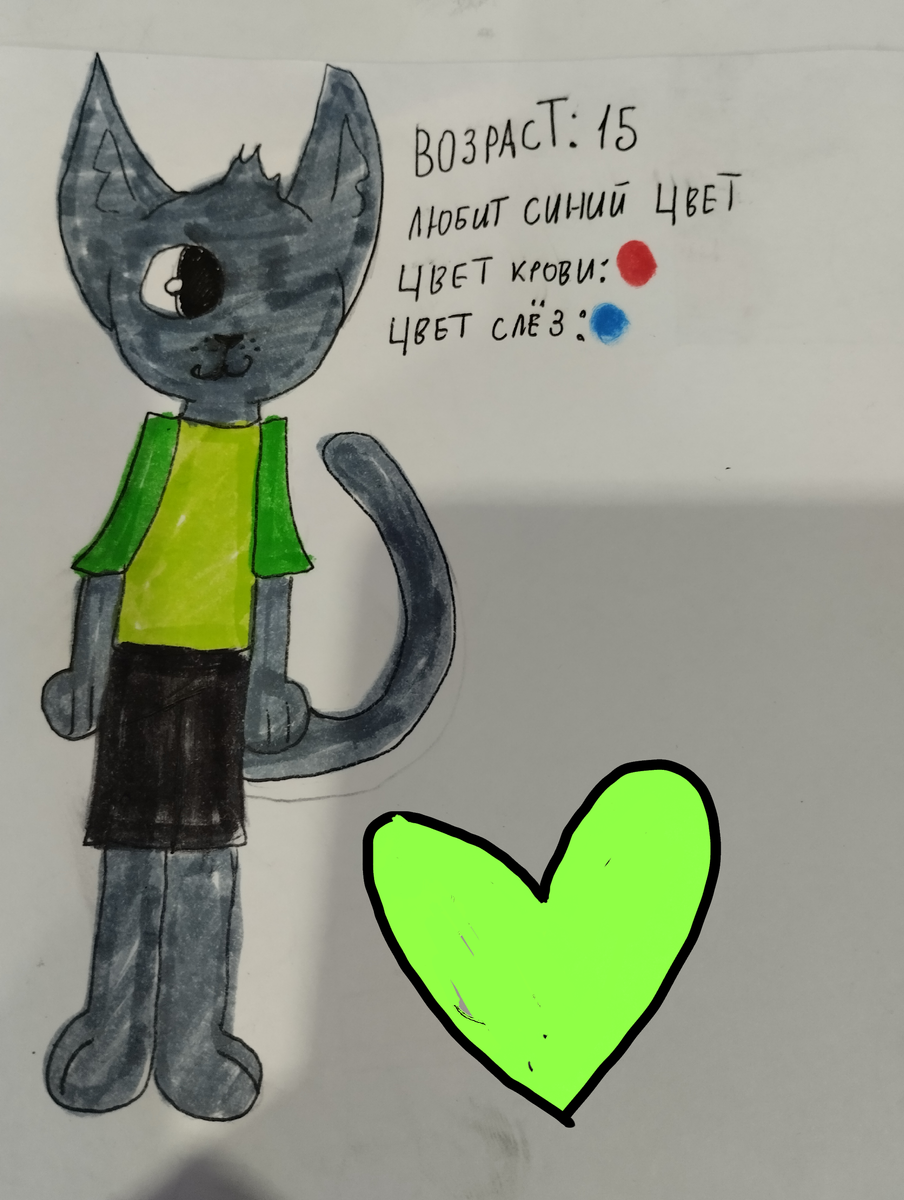 ВОЗРАСТ: 15
ЛЮБИТ СИНИЙ ЦВЕТ
ЦВЕТ КРОВИ:
ЦВЕТ СЛЁЗ: